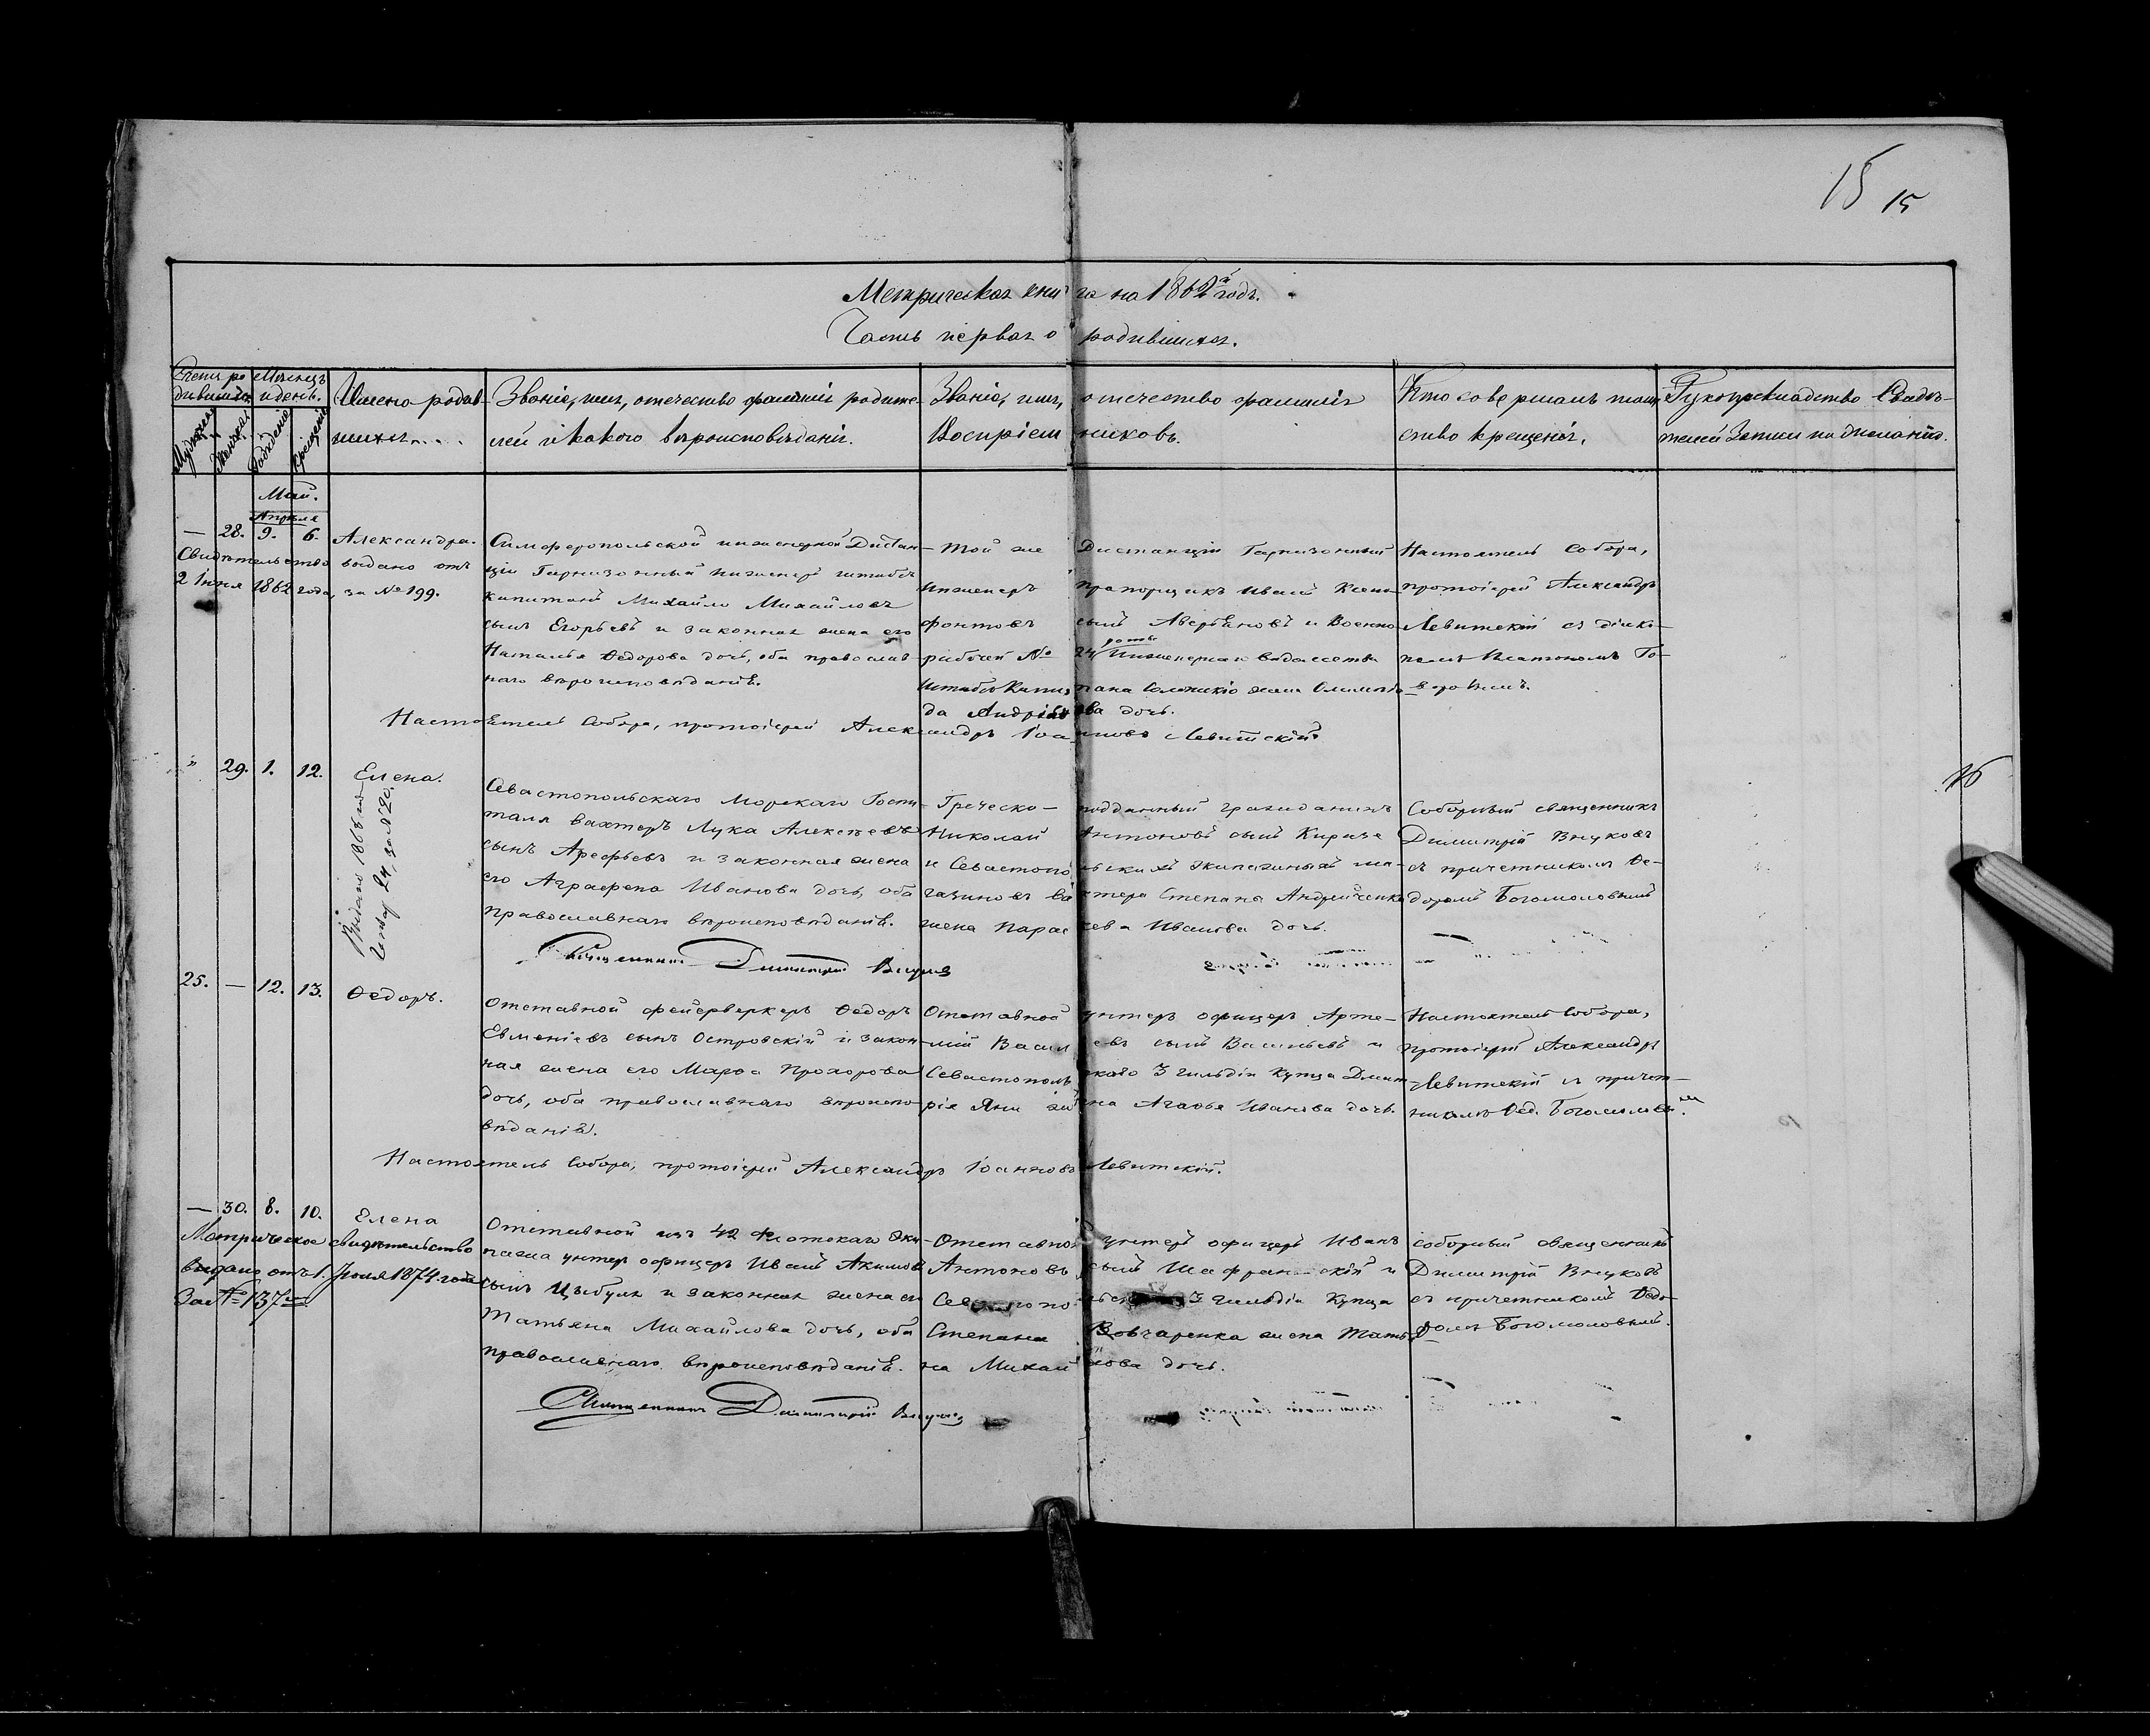 15 15
Метрическая книга на 1862й годъ.
Часть первая о родившихся.
Счетъ родившихся.
Мужеска
Женска
Мѣсяцъ и день.
Рожденія
Крещенія
Имена родившихся
Званіе, имя, отечество фамилія родителей и какого вѣроисповѣданія.
Званіе, имя, отечество фамилія Воспріемниковъ.
Кто совершалъ таинство крещенія.
Рукоприкладство Свидѣтелей записи по желанію.
Май.
Апрѣля
— 28. 9. 6. Александра.
Свидѣтельство выдано отъ
2 Іюня 1862 года, за № 199.
Симферопольской инженерной Дистан-
ціи Гарнизонный инженеръ штабсъ
капитанъ Михайло Михайловъ
сынъ Егорьевъ и законная жена его
Наталья Ѳедорова дочь, оба православ-
наго вѣроисповѣданія.
Той же Дистанціи Гарнизонный
Инженеръ прапорщикъ Иванъ Ксено-
фонтовъ сынъ Аверьяновъ и Военно
рабочей № 24 роты Инженернаго вѣдомства
Штабсъ Капитана жена
да Андреева дочь.
Настоятель Собора,
протоіерей Александръ
Левитскій съ діако-
номъ Платономъ Го-
Настоятель Собора, протоіерей Александръ Іоанновъ Левитскій.
" 29. 1. 12. Елена.
Выдано 1868 год
Генвар 24, за № 20.
Севастопольскаго Морскаго Госпи-
таля вахтеръ Лука Алексѣевъ
сынъ Арефьевъ и законная жена
его Аграфена Иванова дочь, оба
православнаго вѣроисповѣданія.
Греческо-подданный гражданинъ
Николай Антоновъ сынъ Киризе
и Севастопольскихъ экипажныхъ ма-
газиновъ вахтера Степана Андрейченко
жена Параскева Иванова дочь.
Соборный священникъ
Димитрій Внуковъ
съ причетникомъ Ѳе-
доромъ Богомоловымъ
Священникъ Димитрій Внуковъ
16
25. — 12. 13. Ѳедоръ.
Отставной фейерверкеръ Ѳедоръ
Евменіевъ сынъ Островскій и закон-
ная жена его Марѳа Прохорова
дочь, оба православнаго вѣроиспо-
вѣданія.
Отставной унтеръ офицеръ Арте-
мій Васильевъ сынъ Васильевъ и
Севастопольскаго 3 гильдіи купца Димит-
рія Яни жена Агафья Иванова дочь.
Настоятель Собора,
протоіерей Александръ
Левитскій съ причет-
никомъ Ѳед. Богомоловымъ.
Настоятель Собора, протоіерей Александръ Іоанновъ Левитскій.
— 30. 8. 10. Елена
Метрическое свидѣтельство
выдано отъ 1. Іюня 1874 года
За № 137
Отставной изъ 42 Флотскаго Эки-
пажа унтер офицеръ Иванъ Акимовъ
сынъ Цыбуля и законная жена его
Татьяна Михайлова дочь, оба
православнаго вѣроисповѣданія.
Отставной унтеръ офицеръ Иванъ
Антоновъ сынъ и
Севастопольскаго 3 гильдіи Купца
Степана Вовчаренка жена Татья-
на Михайлова дочь.
соборный священникъ
Димитрій Внуковъ
съ причетникомъ Ѳедо-
ромъ Богомоловымъ.
Священникъ Димитрій Внуковъ